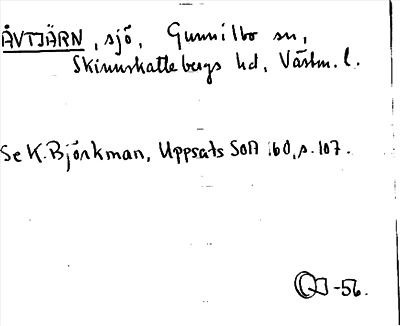 ÅVTJÄRN, sjö, Gunnilbo sn,
Skinnskattebergs hd, Västm. l.
Se K. Björkman, Uppsats SOA 160, s. 107.
-56.